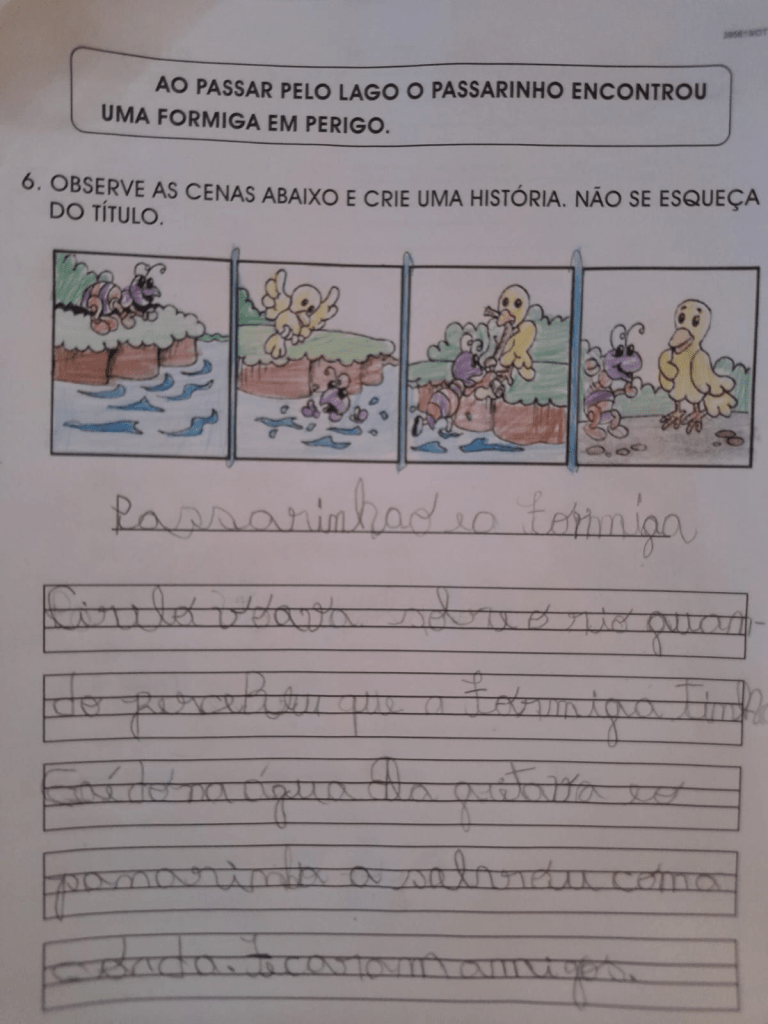 AO PASSAR PELO LAGO O PASSARINHO ENCONTROU
UMA FORMIGA EM PERIGO.
6. OBSERVE AS CENAS ABAIXO E CRIE UMA HISTÓRIA. NÃO SE ESQUEÇA
DO TÍTULO.
Passarinhao e a formiga
voava sobre o rio quan-
do percebeu que a formiga tinha
caído na água Ela gritava e o
a salvou com a
amigos.